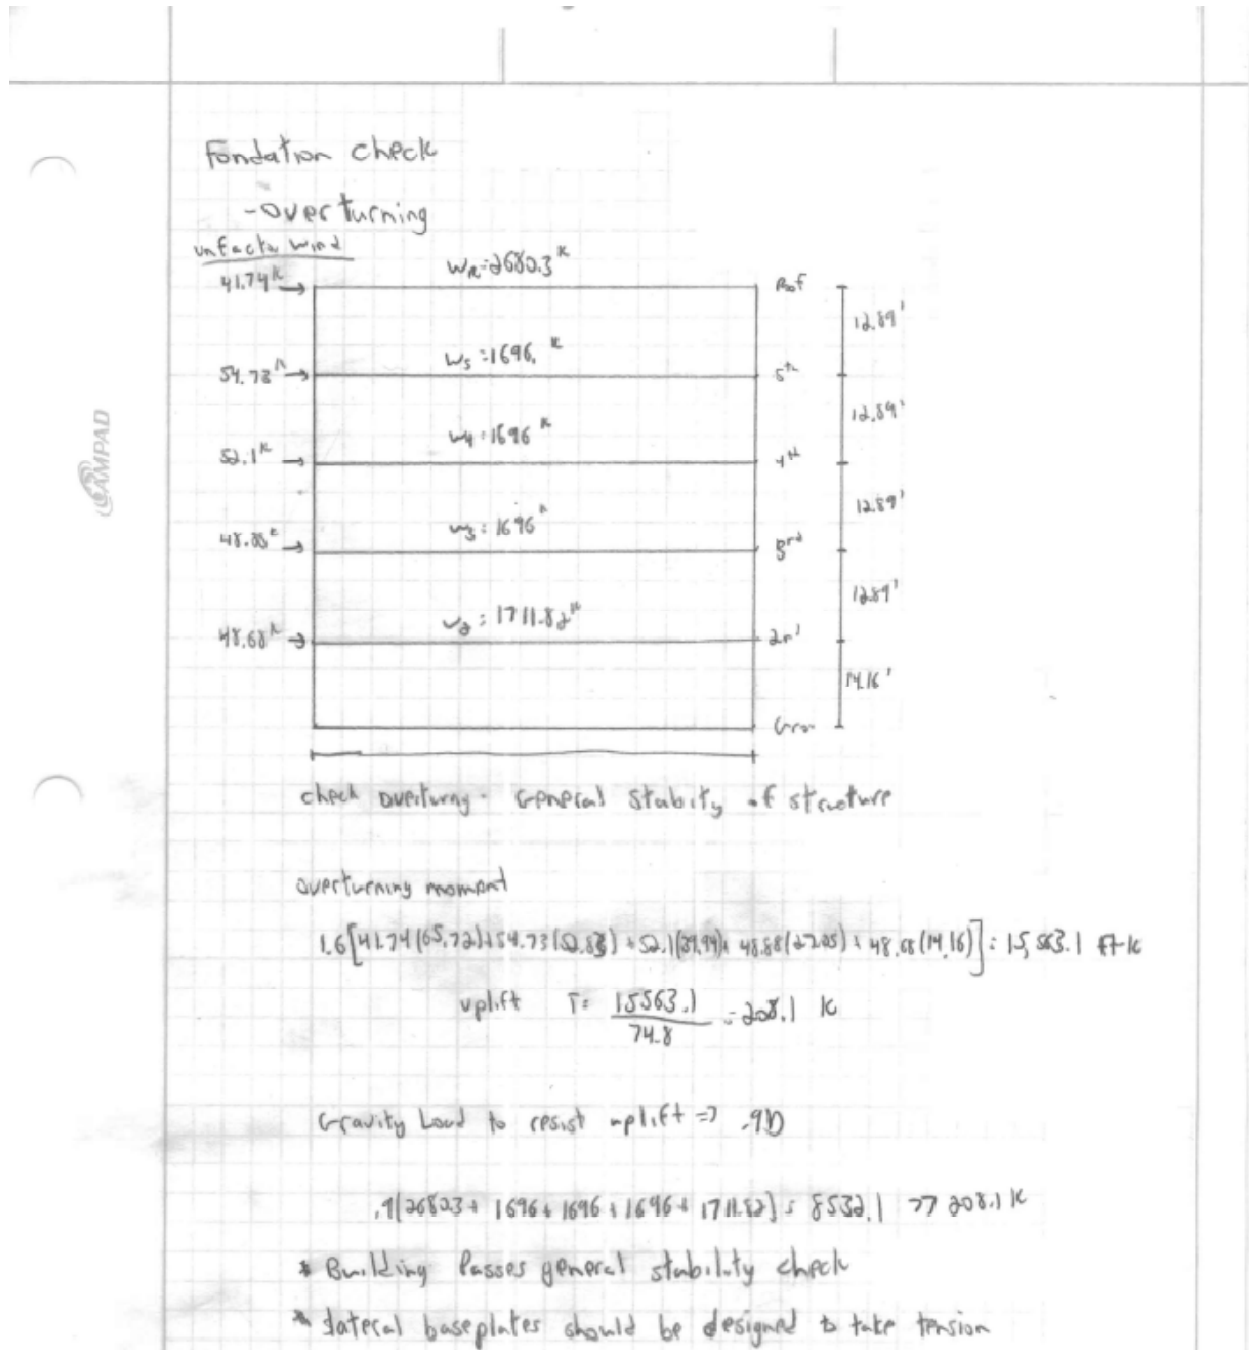 Fondation check
-Overturning
unfactor wind
41.74ᵏ → W_R=2680.3ᵏ Roof
12.89'
54.73ᵏ → W₅=1696.ᵏ 5th
12.89'
52.1ᵏ → W₄=1696ᵏ 4th
12.89'
48.88ᵏ → W₃=1696ᵏ 3rd
12.89'
48.68ᵏ → W₂=1711.82ᵏ 2nd
14.16'
AMPAD
check overturny - General Stabity of structure
overturning moment
1.6[41.74(65.72)+54.73(52.83)+52.1(39.94)+48.88(27.05)+48.68(14.16)]=15,563.1 ft-k
uplift T= 15563.1 / 74.8 = 208.1 k
Gravity Load to resist uplift => .9D
.9(2680.3+1696+1696+1696+1711.82)=8532.1 >> 208.1 k
* Building Passes general stability check
* lateral baseplates should be designed to take tension